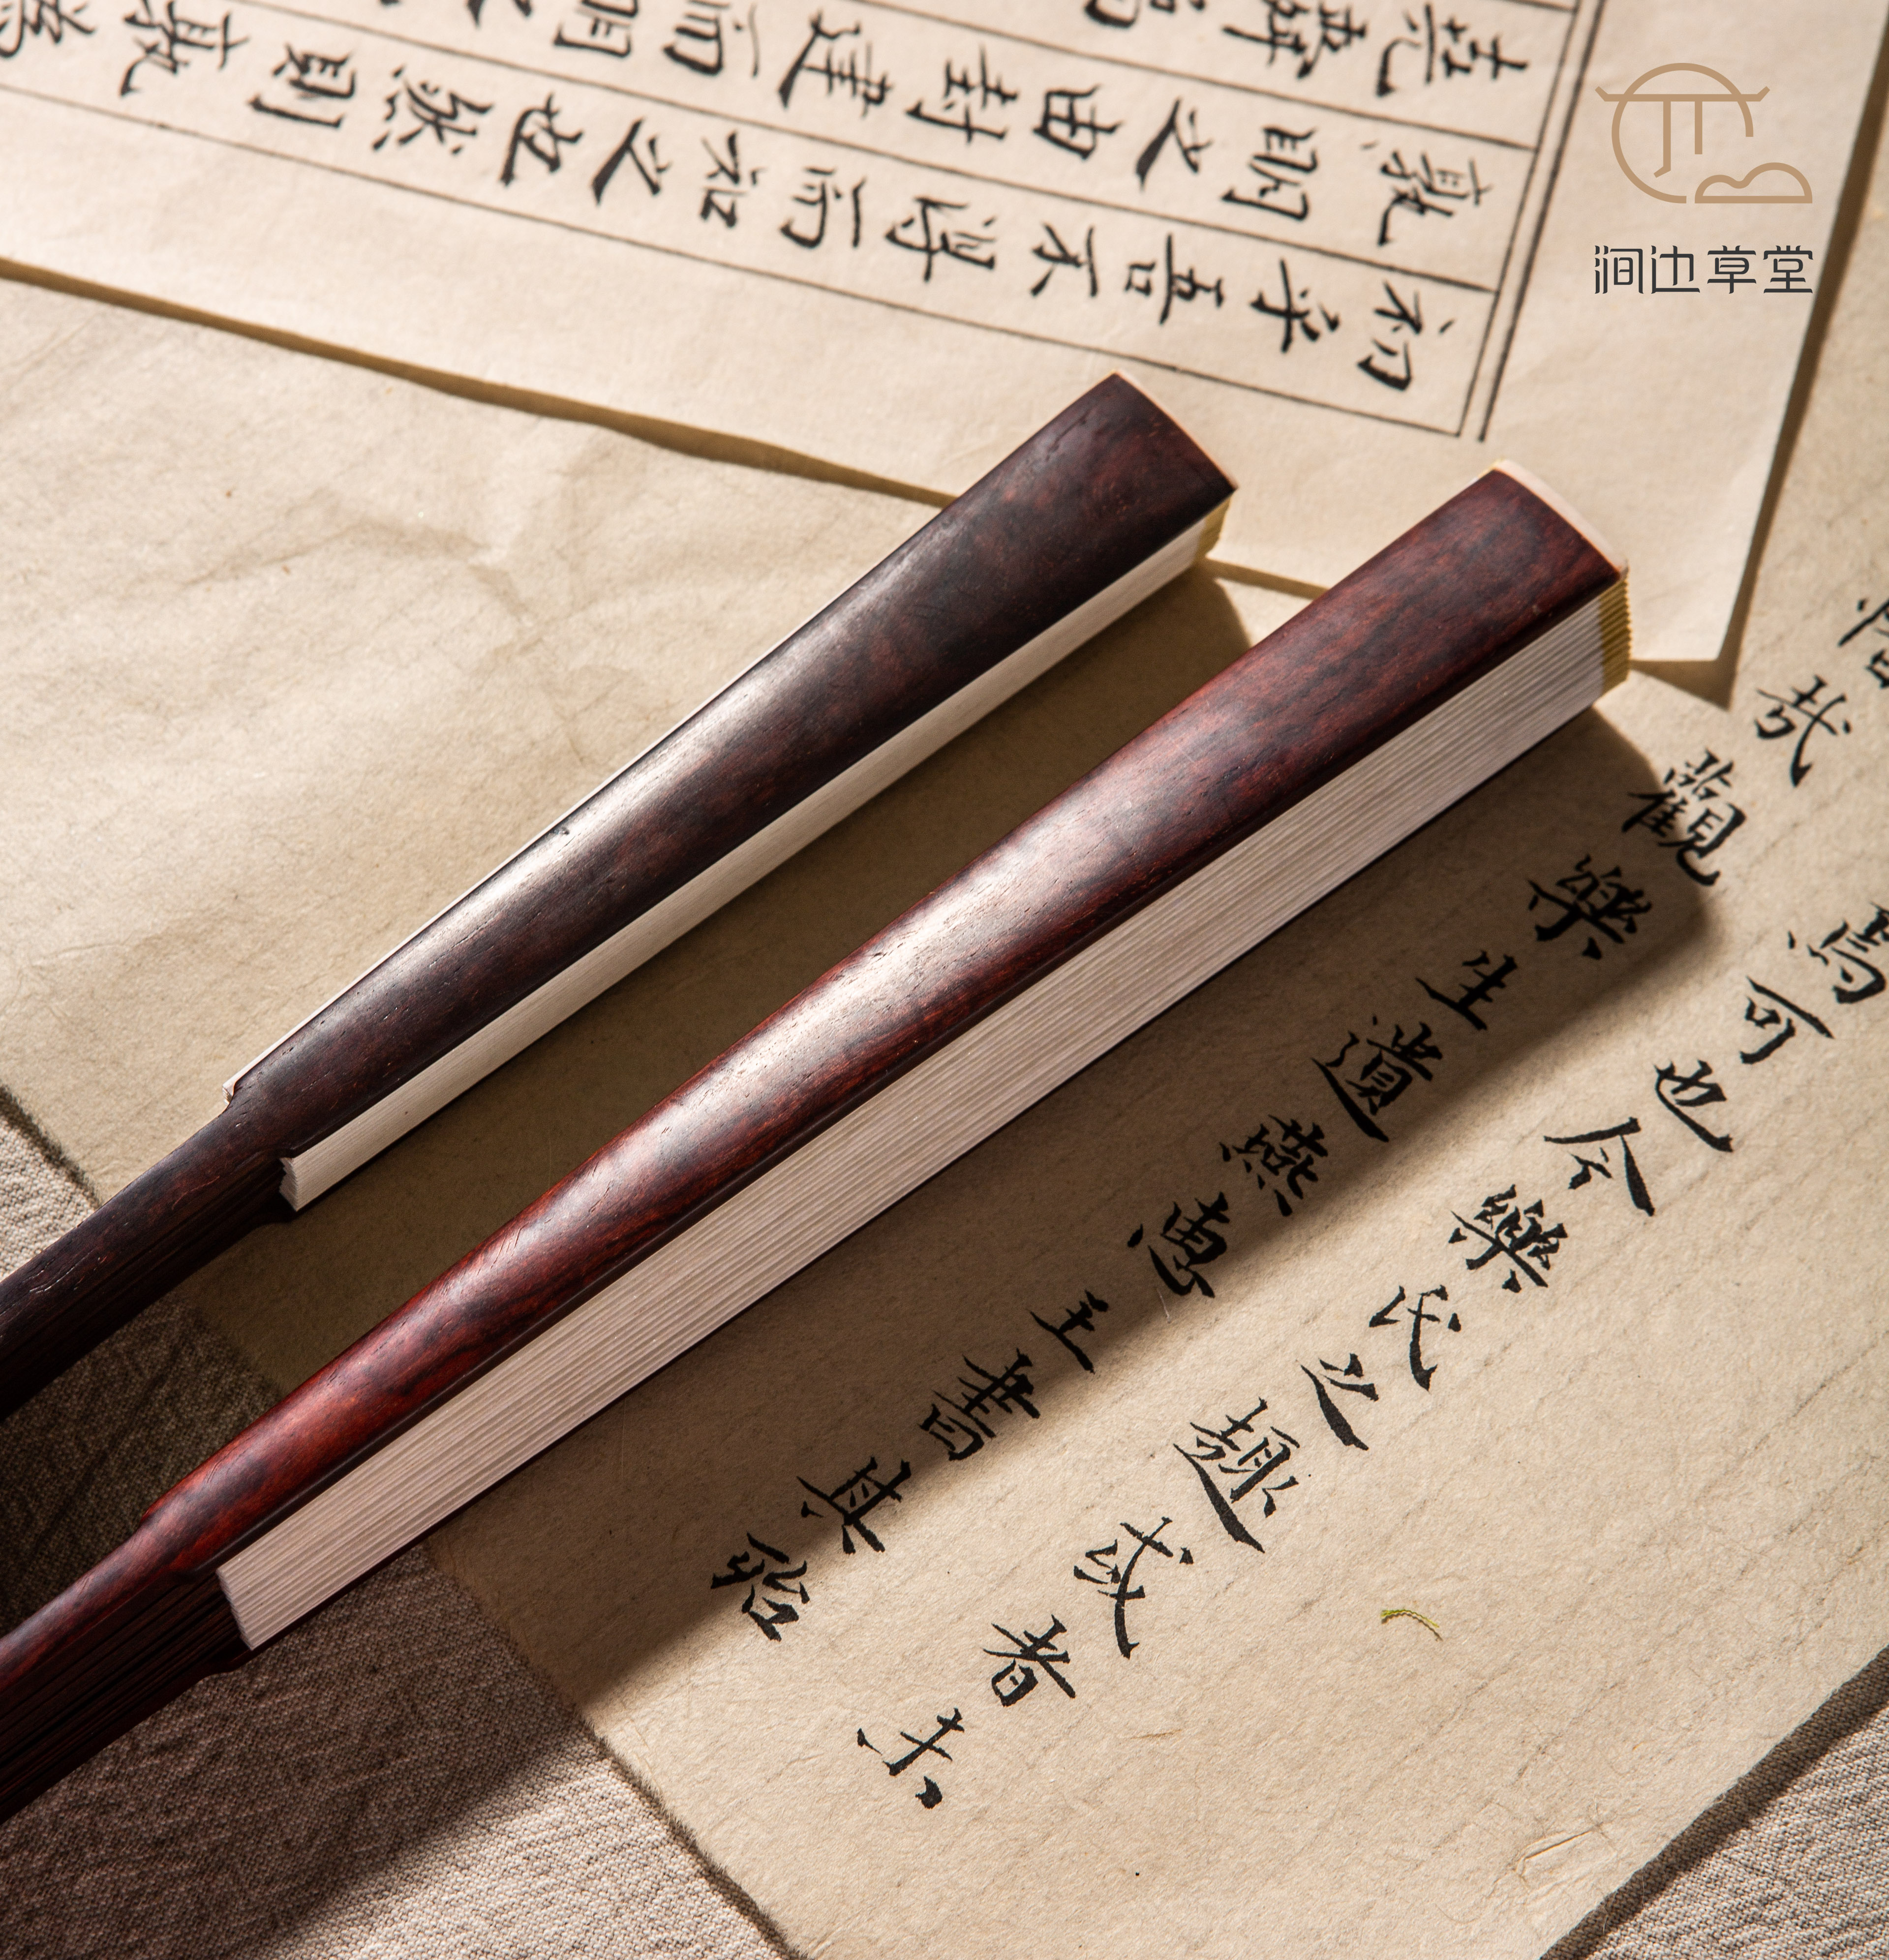 涧边草堂
初乎吾不得而知之也然則孰為
孰明之由封建而明之
堯舜禹
焉可也今樂氏之趣或者未
惜哉觀樂生遺燕惠王書其殆